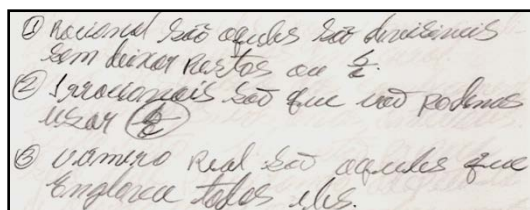 ① Racional são aqueles são divisiveis
sem deixar restos ou a/b.
② Irracionais são que não podemos
usar a/b
③ número Real são aqueles que
Engloba todos eles.